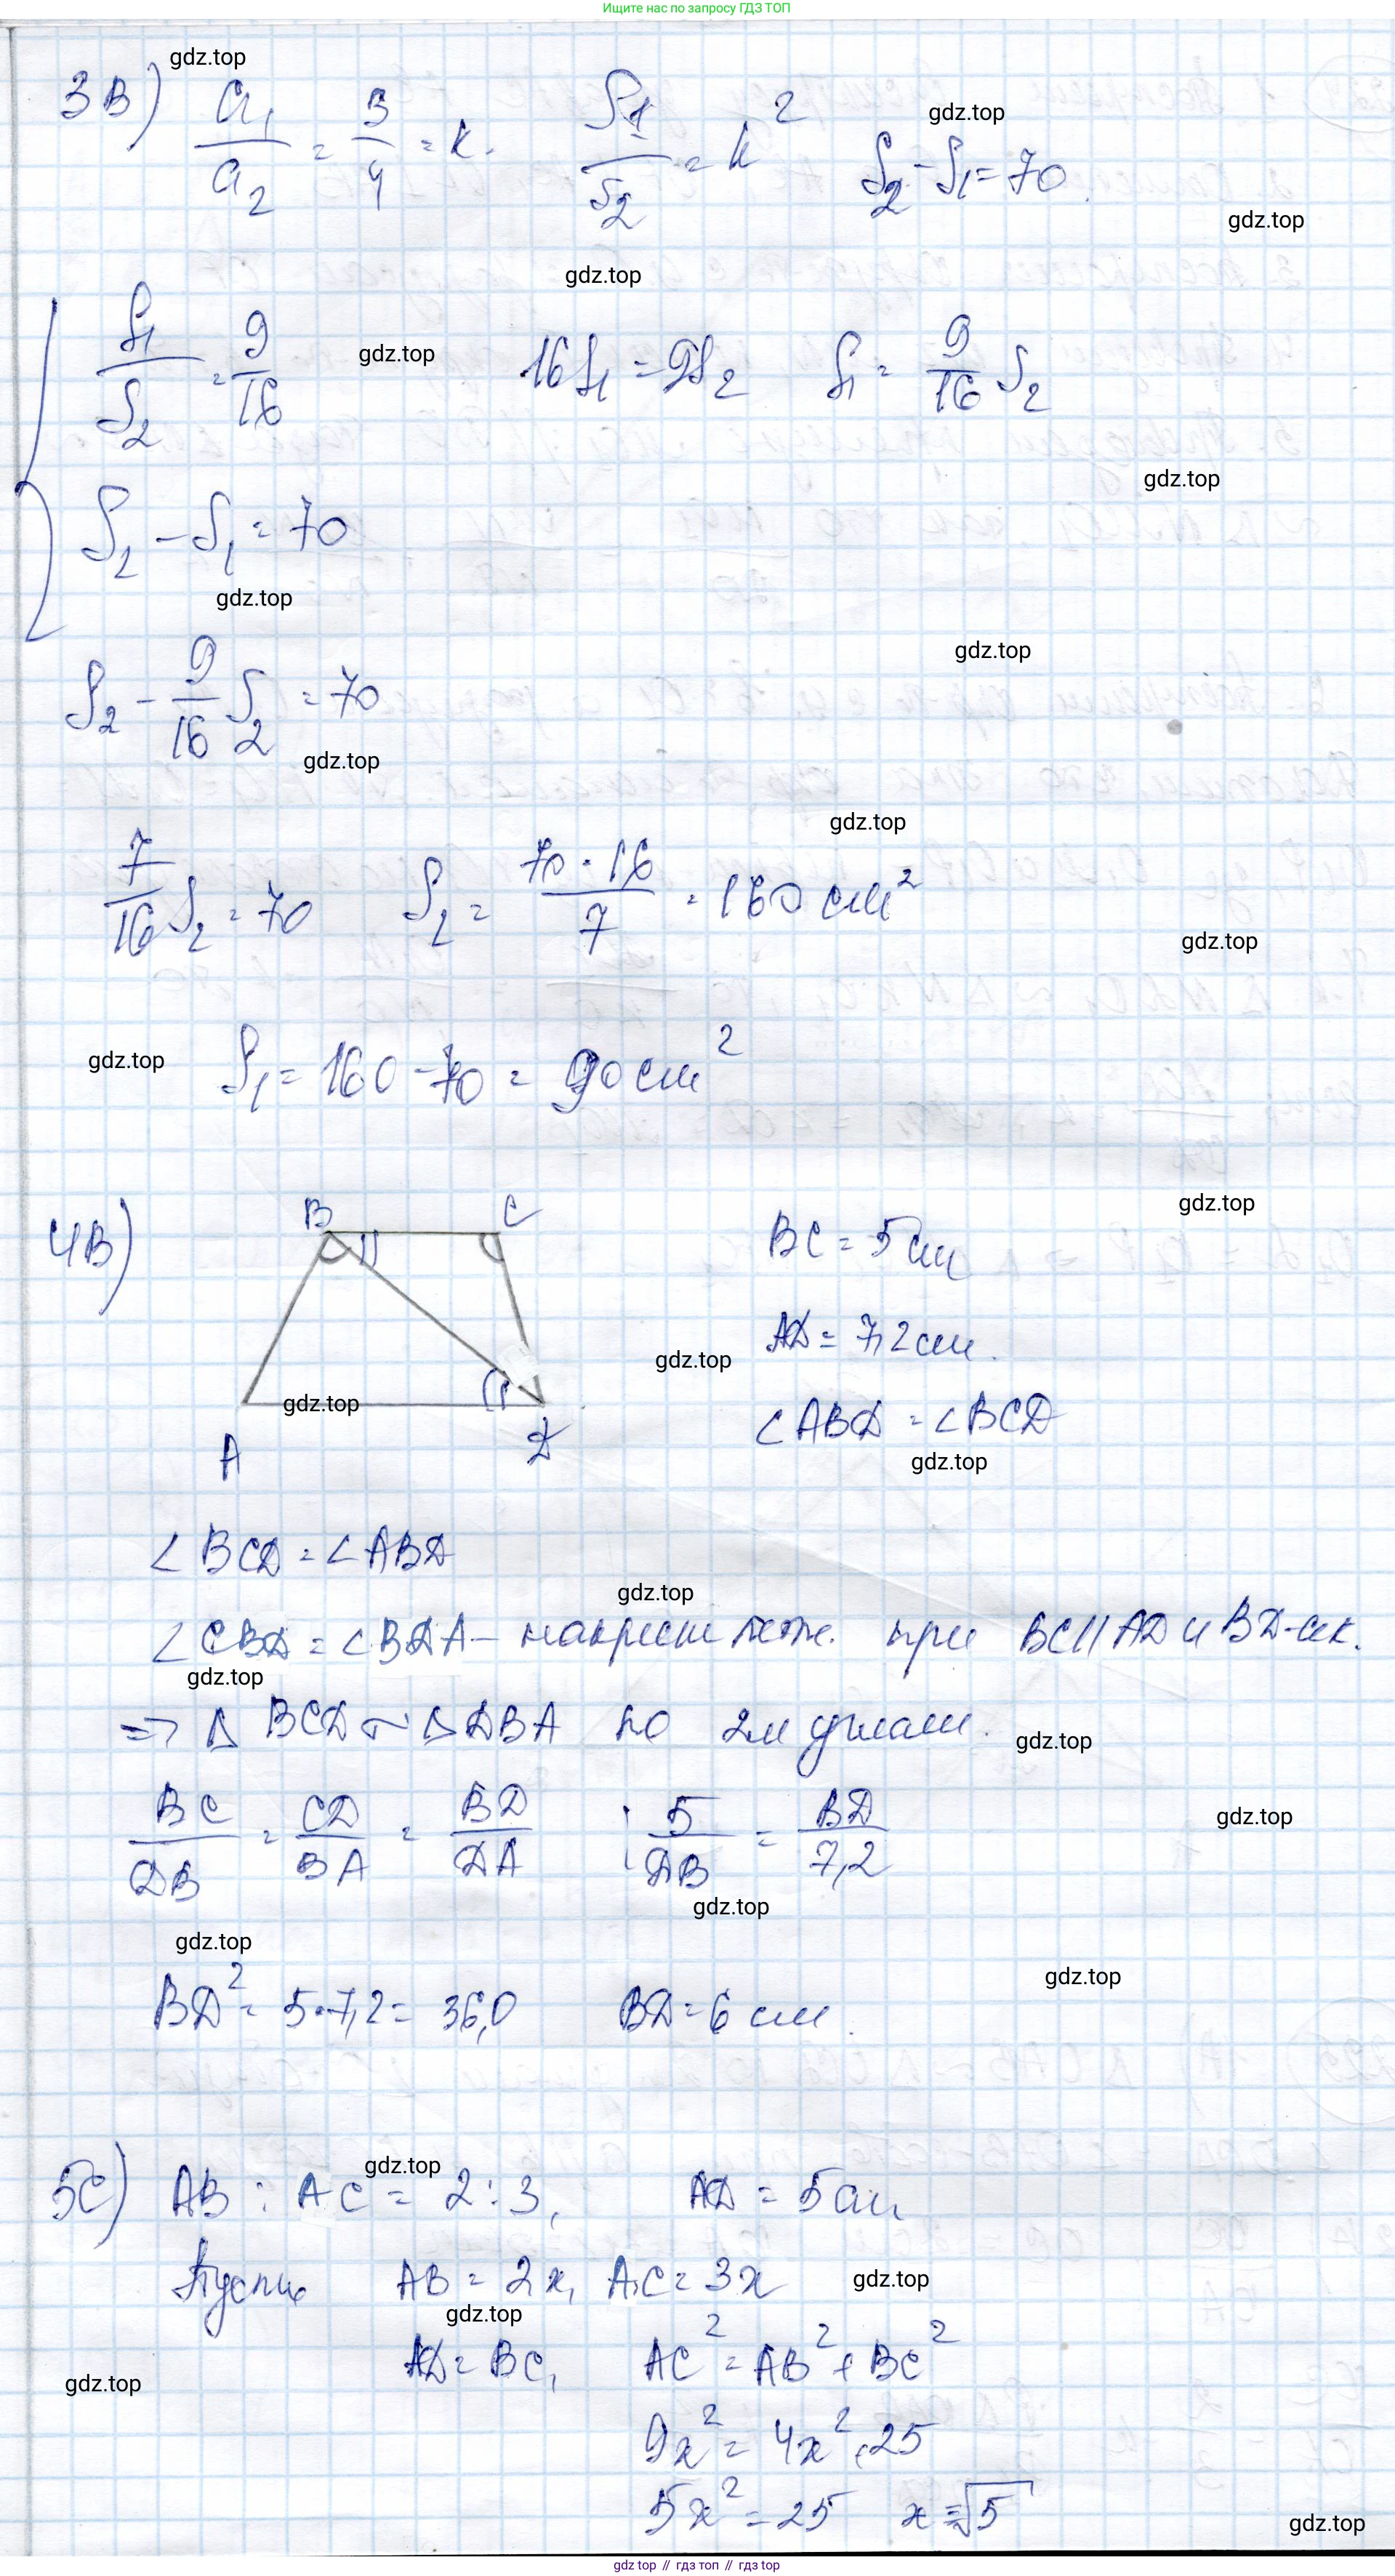 Ищите нас по запросу ГДЗ ТОП
gdz.top
3В) a₁/a₂ = 3/4 = k. S₁/S₂ = k² S₂ - S₁ = 70
gdz.top
gdz.top
gdz.top
S₁/S₂ = 9/16 16S₁ = 9S₂ S₁ = 9/16 S₂
gdz.top
gdz.top
S₂ - S₁ = 70
gdz.top
gdz.top
S₂ - 9/16 S₂ = 70
gdz.top
gdz.top
7/16 S₂ = 70 S₂ = 70 · 16/7 = 160 см²
gdz.top
gdz.top
S₁ = 160 - 70 = 90 см²
gdz.top
4В) B C BC = 5 см
AD = 7,2 см.
gdz.top
gdz.top
∠ABD = ∠BCD
A D
gdz.top
∠BCD = ∠ABD
gdz.top
∠CBD = ∠BDA - накрест леж. при BC || AD и BD - сек.
gdz.top
=> Δ BCD ~ Δ DBA по 2м углам.
gdz.top
BC/DB = CD/BA = BD/DA ; 5/DB = BD/7,2
gdz.top
gdz.top
gdz.top
gdz.top
BD² = 5·7,2 = 36,0 BD = 6 см.
gdz.top
5С) AB : AC = 2 : 3, AD = 5 см
Пусть AB = 2x, AC = 3x
gdz.top
gdz.top
AD = BC, AC² = AB² + BC²
gdz.top
9x² = 4x² + 25
5x² = 25 x = √5
gdz.top
gdz top // гдз топ // gdz top